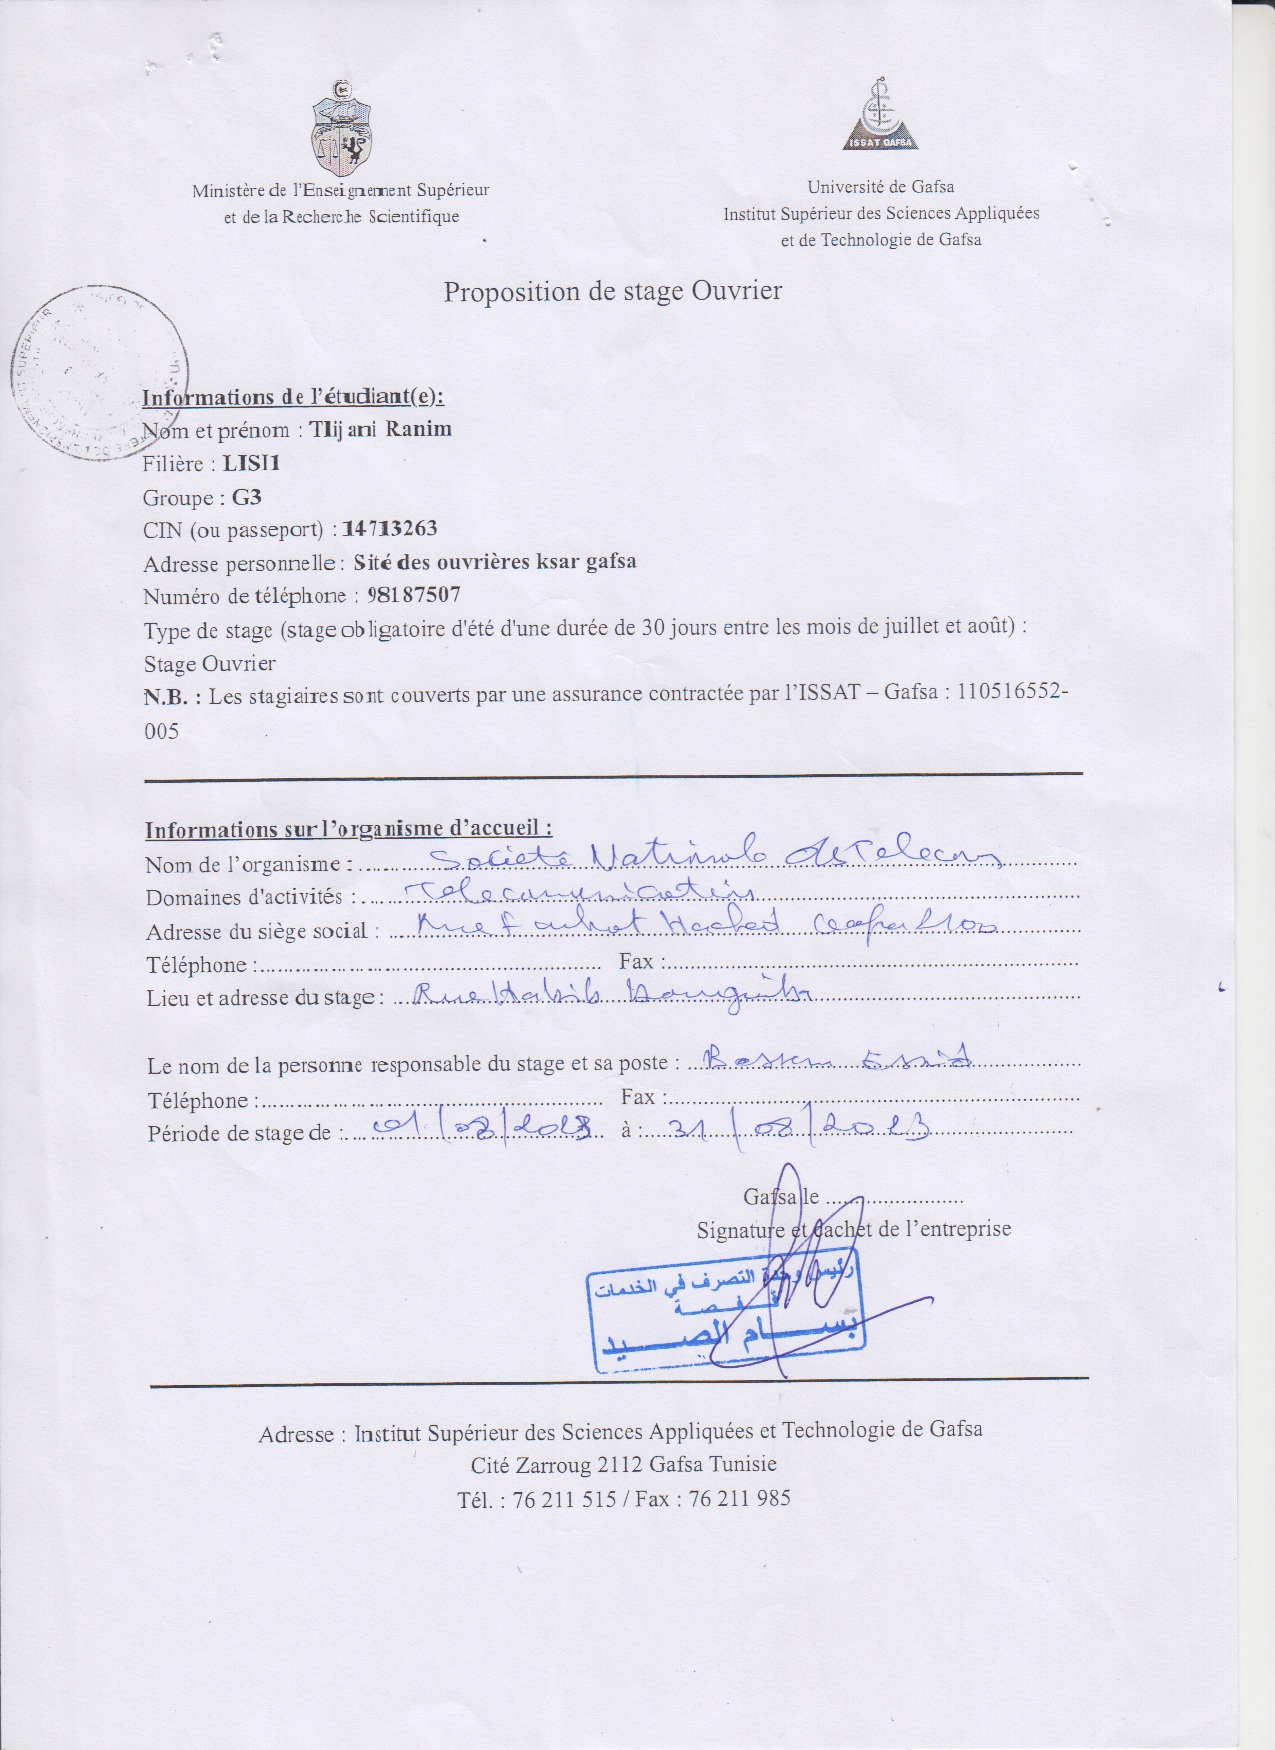 Ministère de l'Enseignement Supérieur
et de la Recherche Scientifique
ISSAT GAFSA
Université de Gafsa
Institut Supérieur des Sciences Appliquées
et de Technologie de Gafsa
Proposition de stage Ouvrier
Informations de l'étudiant(e):
Nom et prénom : Tlijani Ranim
Filière : LISI1
Groupe : G3
CIN (ou passeport) : 14713263
Adresse personnelle : Sité des ouvrières ksar gafsa
Numéro de téléphone : 98187507
Type de stage (stage obligatoire d'été d'une durée de 30 jours entre les mois de juillet et août) :
Stage Ouvrier
N.B. : Les stagiaires sont couverts par une assurance contractée par l'ISSAT – Gafsa : 110516552-
005
Informations sur l'organisme d'accueil :
Nom de l'organisme : Société Nationale de Telecom
Domaines d'activités : Telecomunication
Adresse du siège social : Rue Farhat Hached Gafsa 2100
Téléphone : Fax :
Lieu et adresse du stage : Rue Habib Bourguiba
Le nom de la personne responsable du stage et sa poste : Bassem Essid
Téléphone : Fax :
Période de stage de : 01/08/2023 à : 31/08/2023
Gafsa le
Signature et cachet de l'entreprise
رئيس وحدة التصرف في الخدمات
قفصة
بسام الصيد
Adresse : Institut Supérieur des Sciences Appliquées et Technologie de Gafsa
Cité Zarroug 2112 Gafsa Tunisie
Tél. : 76 211 515 / Fax : 76 211 985